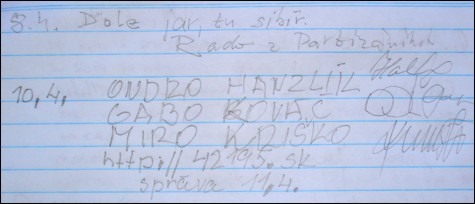 8.4. Dole jar, tu sibír.
Rado z Partizánskeho
10,4, ONDRO HANZLÍK
GABO KOVÁČ
MIRO KRIŠKO
http:// 42195.sk
správa 11.4.